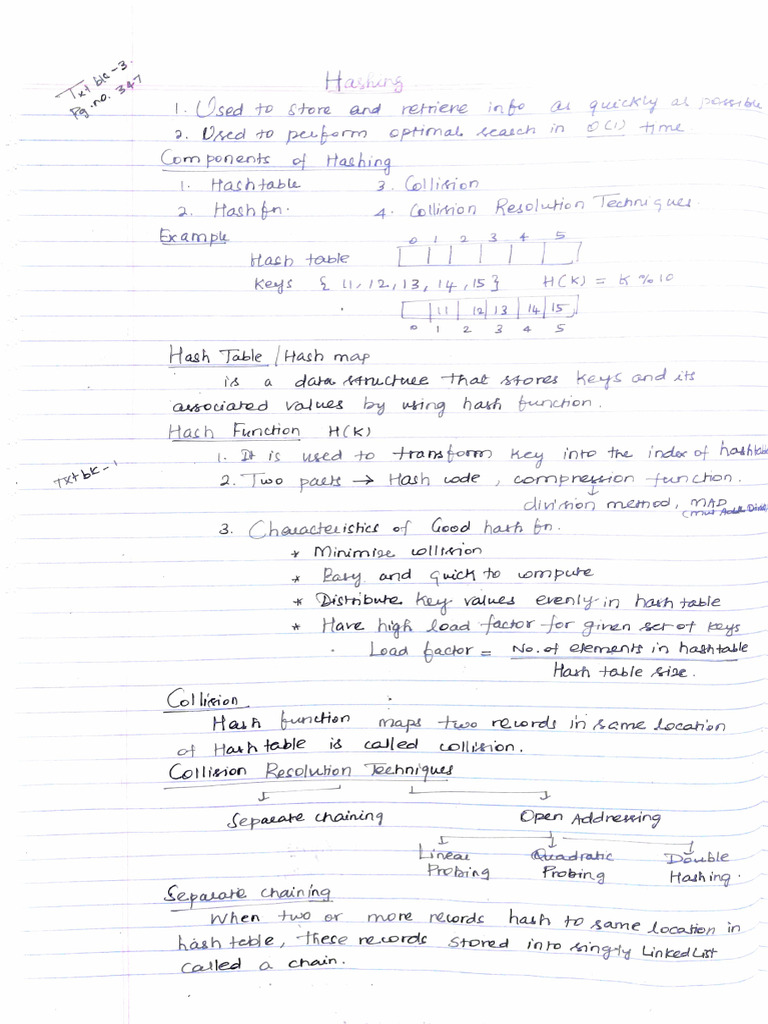 Txt bk-3.
Pg.no. 347
Hashing
1. Used to store and retrieve info as quickly as possible
2. Used to perform optimal search in O(1) time.
Components of Hashing
1. Hashtable 3. Collision
2. Hashfn. 4. Collision Resolution Techniques.
Example
0 1 2 3 4 5
Hash table
Keys { 11, 12, 13, 14, 15 } H(K) = K % 10
11 12 13 14 15
0 1 2 3 4 5
Hash Table / Hash map
is a data structure that stores keys and its
associated values by using hash function.
Hash Function H(K)
1. It is used to transform key into the index of hashtable
Txt bk-1
2. Two parts → Hash code, compression function.
division method, MAD
3. Characteristics of Good hash fn.
* Minimize collision
* Easy and quick to compute
* Distribute key values evenly in hash table
* Have high load factor for given set of keys
Load factor = No. of elements in hashtable
Hash table size.
Collision
Hash function maps two records in same location
of Hash table is called collision.
Collision Resolution Techniques
Separate chaining Open Addressing
Linear Quadratic Double
Probing Probing Hashing.
Separate chaining
When two or more records hash to same location in
hash table, these records stored into singly Linked List
called a chain.